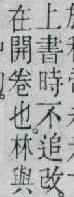 上書時不追改。
在開卷也。林與